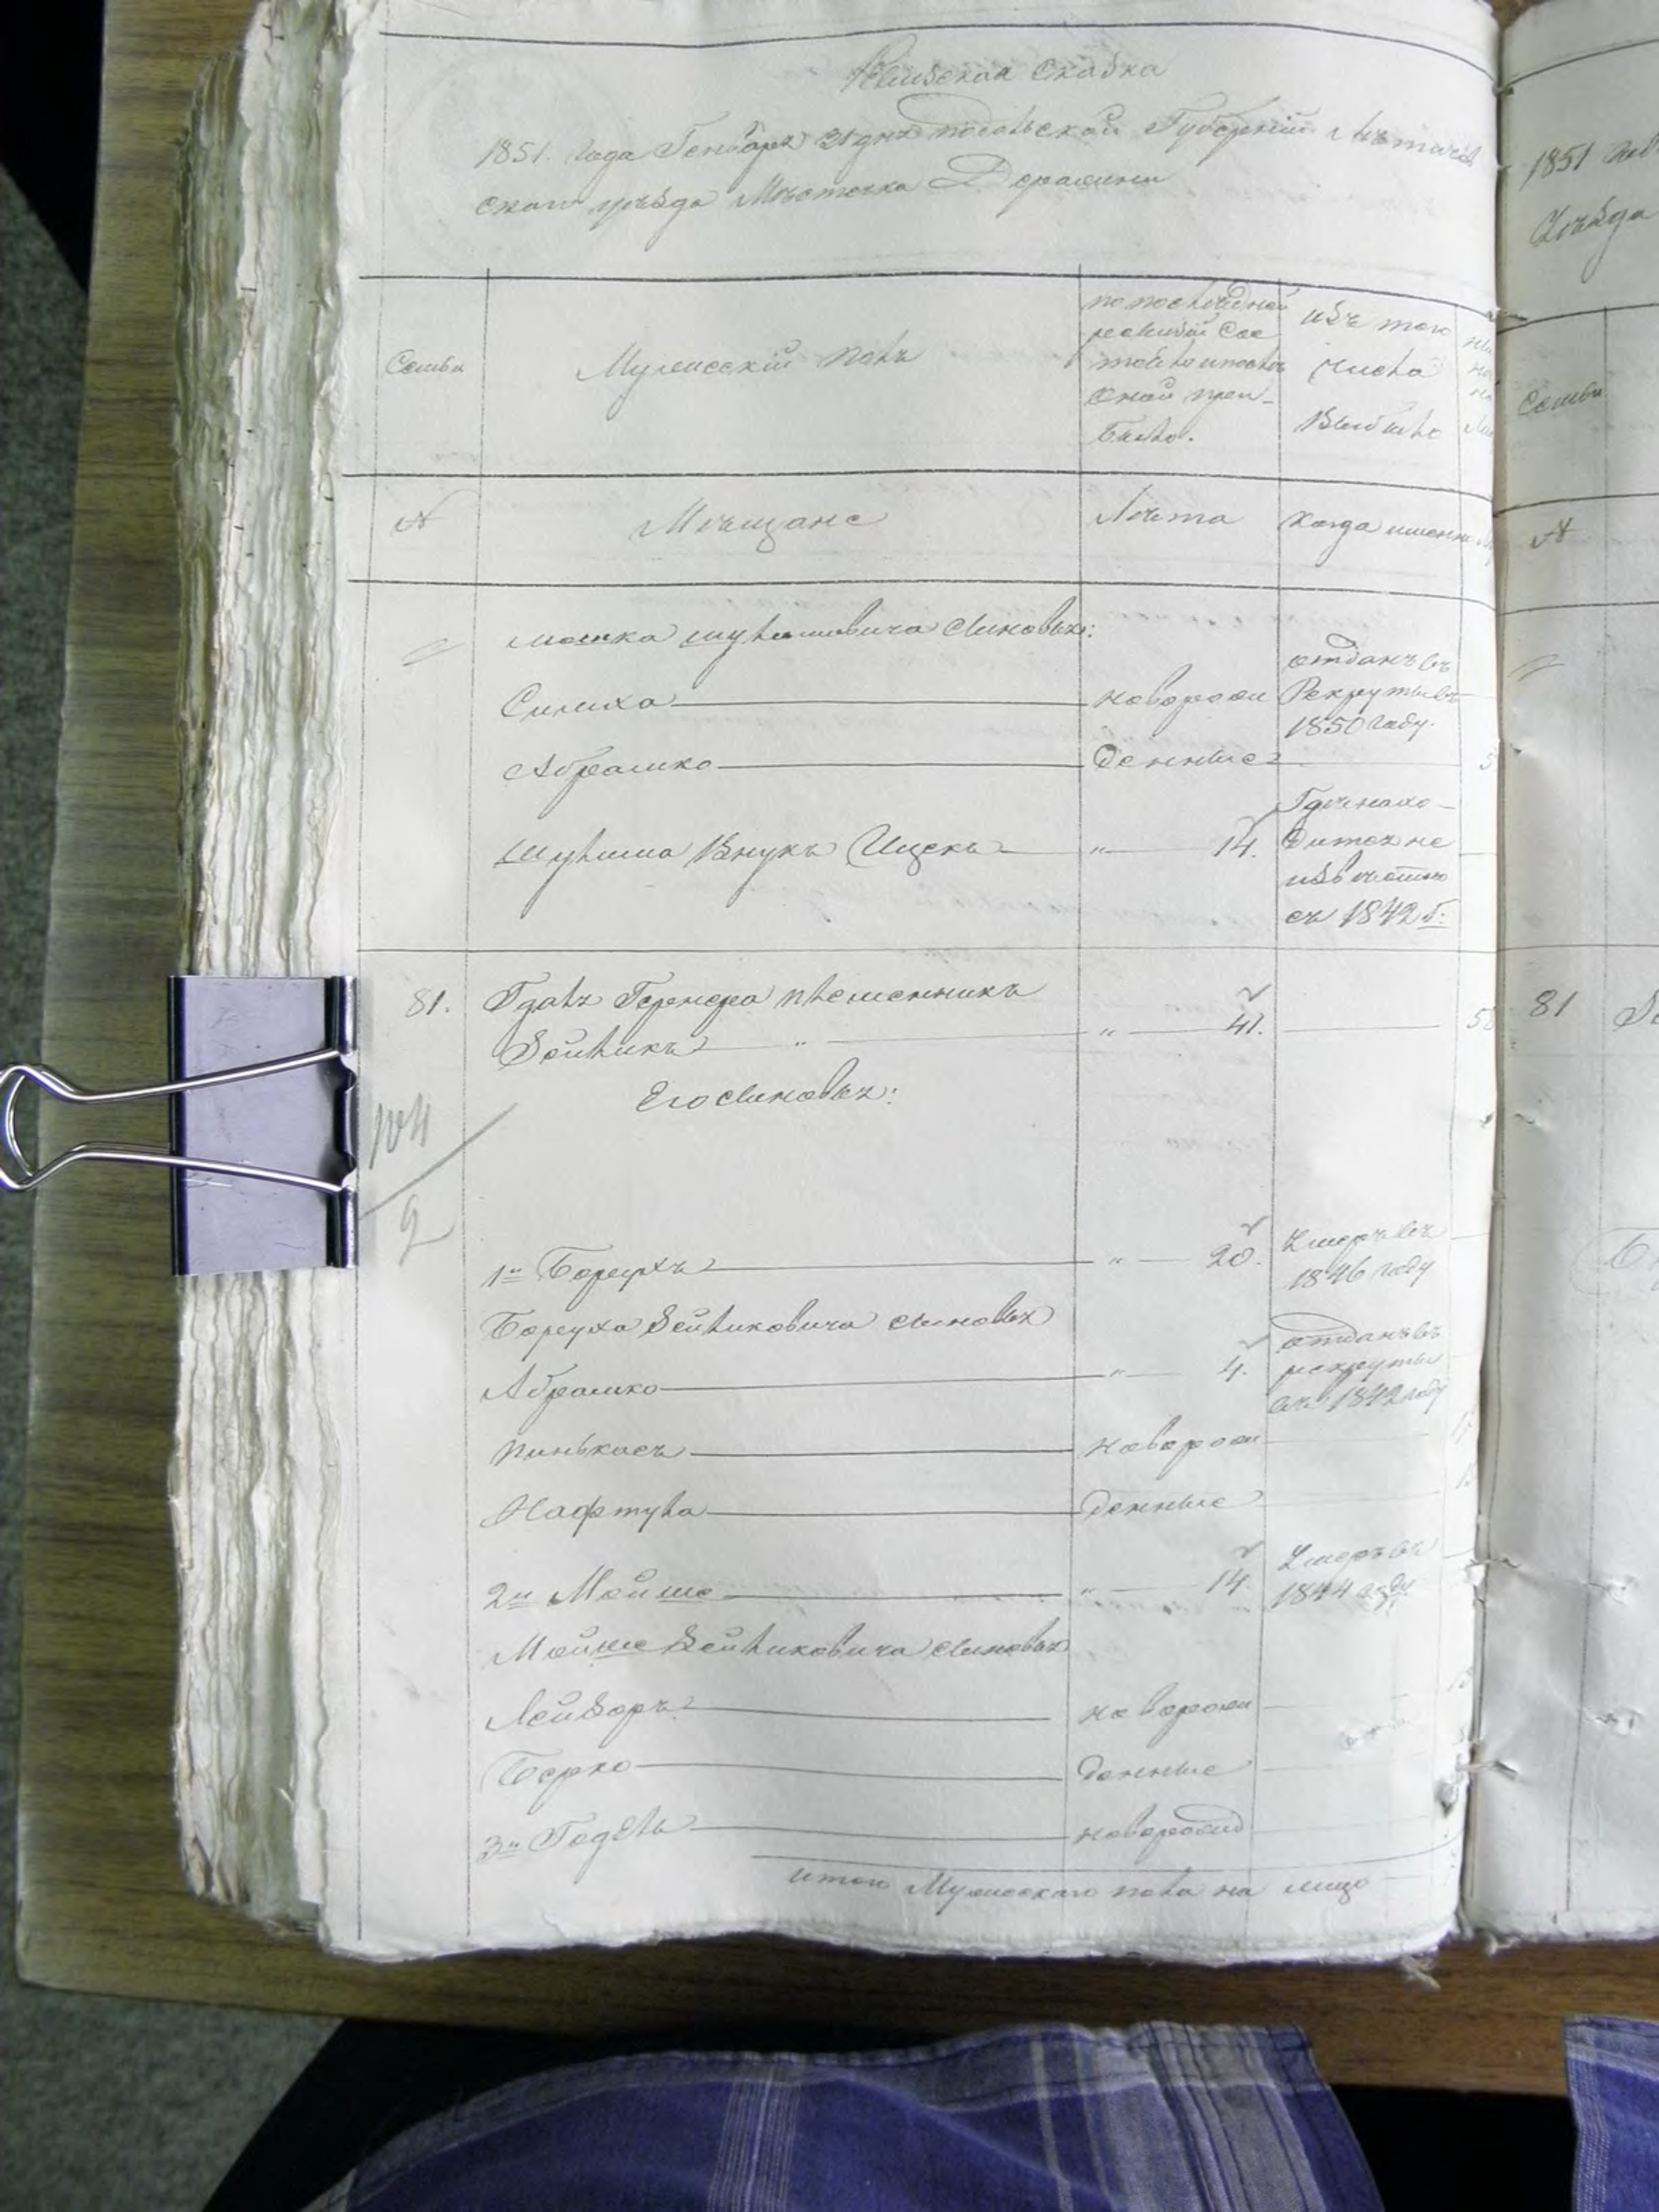 Ревизская Сказка
1851. года Генваря 31 дня Подольской Губернии Летичев
скаго уезда Местечка Деражни
Семьи
Мужеский полъ
по последней
ревизии сос
тояло и после
оной при-
было.
изъ того
числа
Выбыло
№
Мещане
Лета
Когда именно
Мошка Шулимовича Сыновья:
Симха
новорож
отданъ въ
Рекруты въ
1850 году.
Абрамко
денные
Шулима Внукъ Ицекъ
" 14.
Где нахо-
дится не
известно
съ 1842 г:
81.
Гдаль Гернера племенникъ
Зейликъ "
" 41.
Его сыновья:
104
2
1й Борухъ
" 20.
Умеръ въ
1846 году
Боруха Зейликовича сыновья
Абрамко
" 4.
отданъ въ
рекруты
въ 1842 году
Пинькасъ
новорож
Нафтула
денные
2й Мойше
" 14.
Умеръ въ
1844 году
Мойше Зейликовича сыновья
Лейзоръ
новорож
Берко
денные
3й Годель
новорожд
итого Мужескаго пола на лицо
1851
Уезда
Семьи
№
81